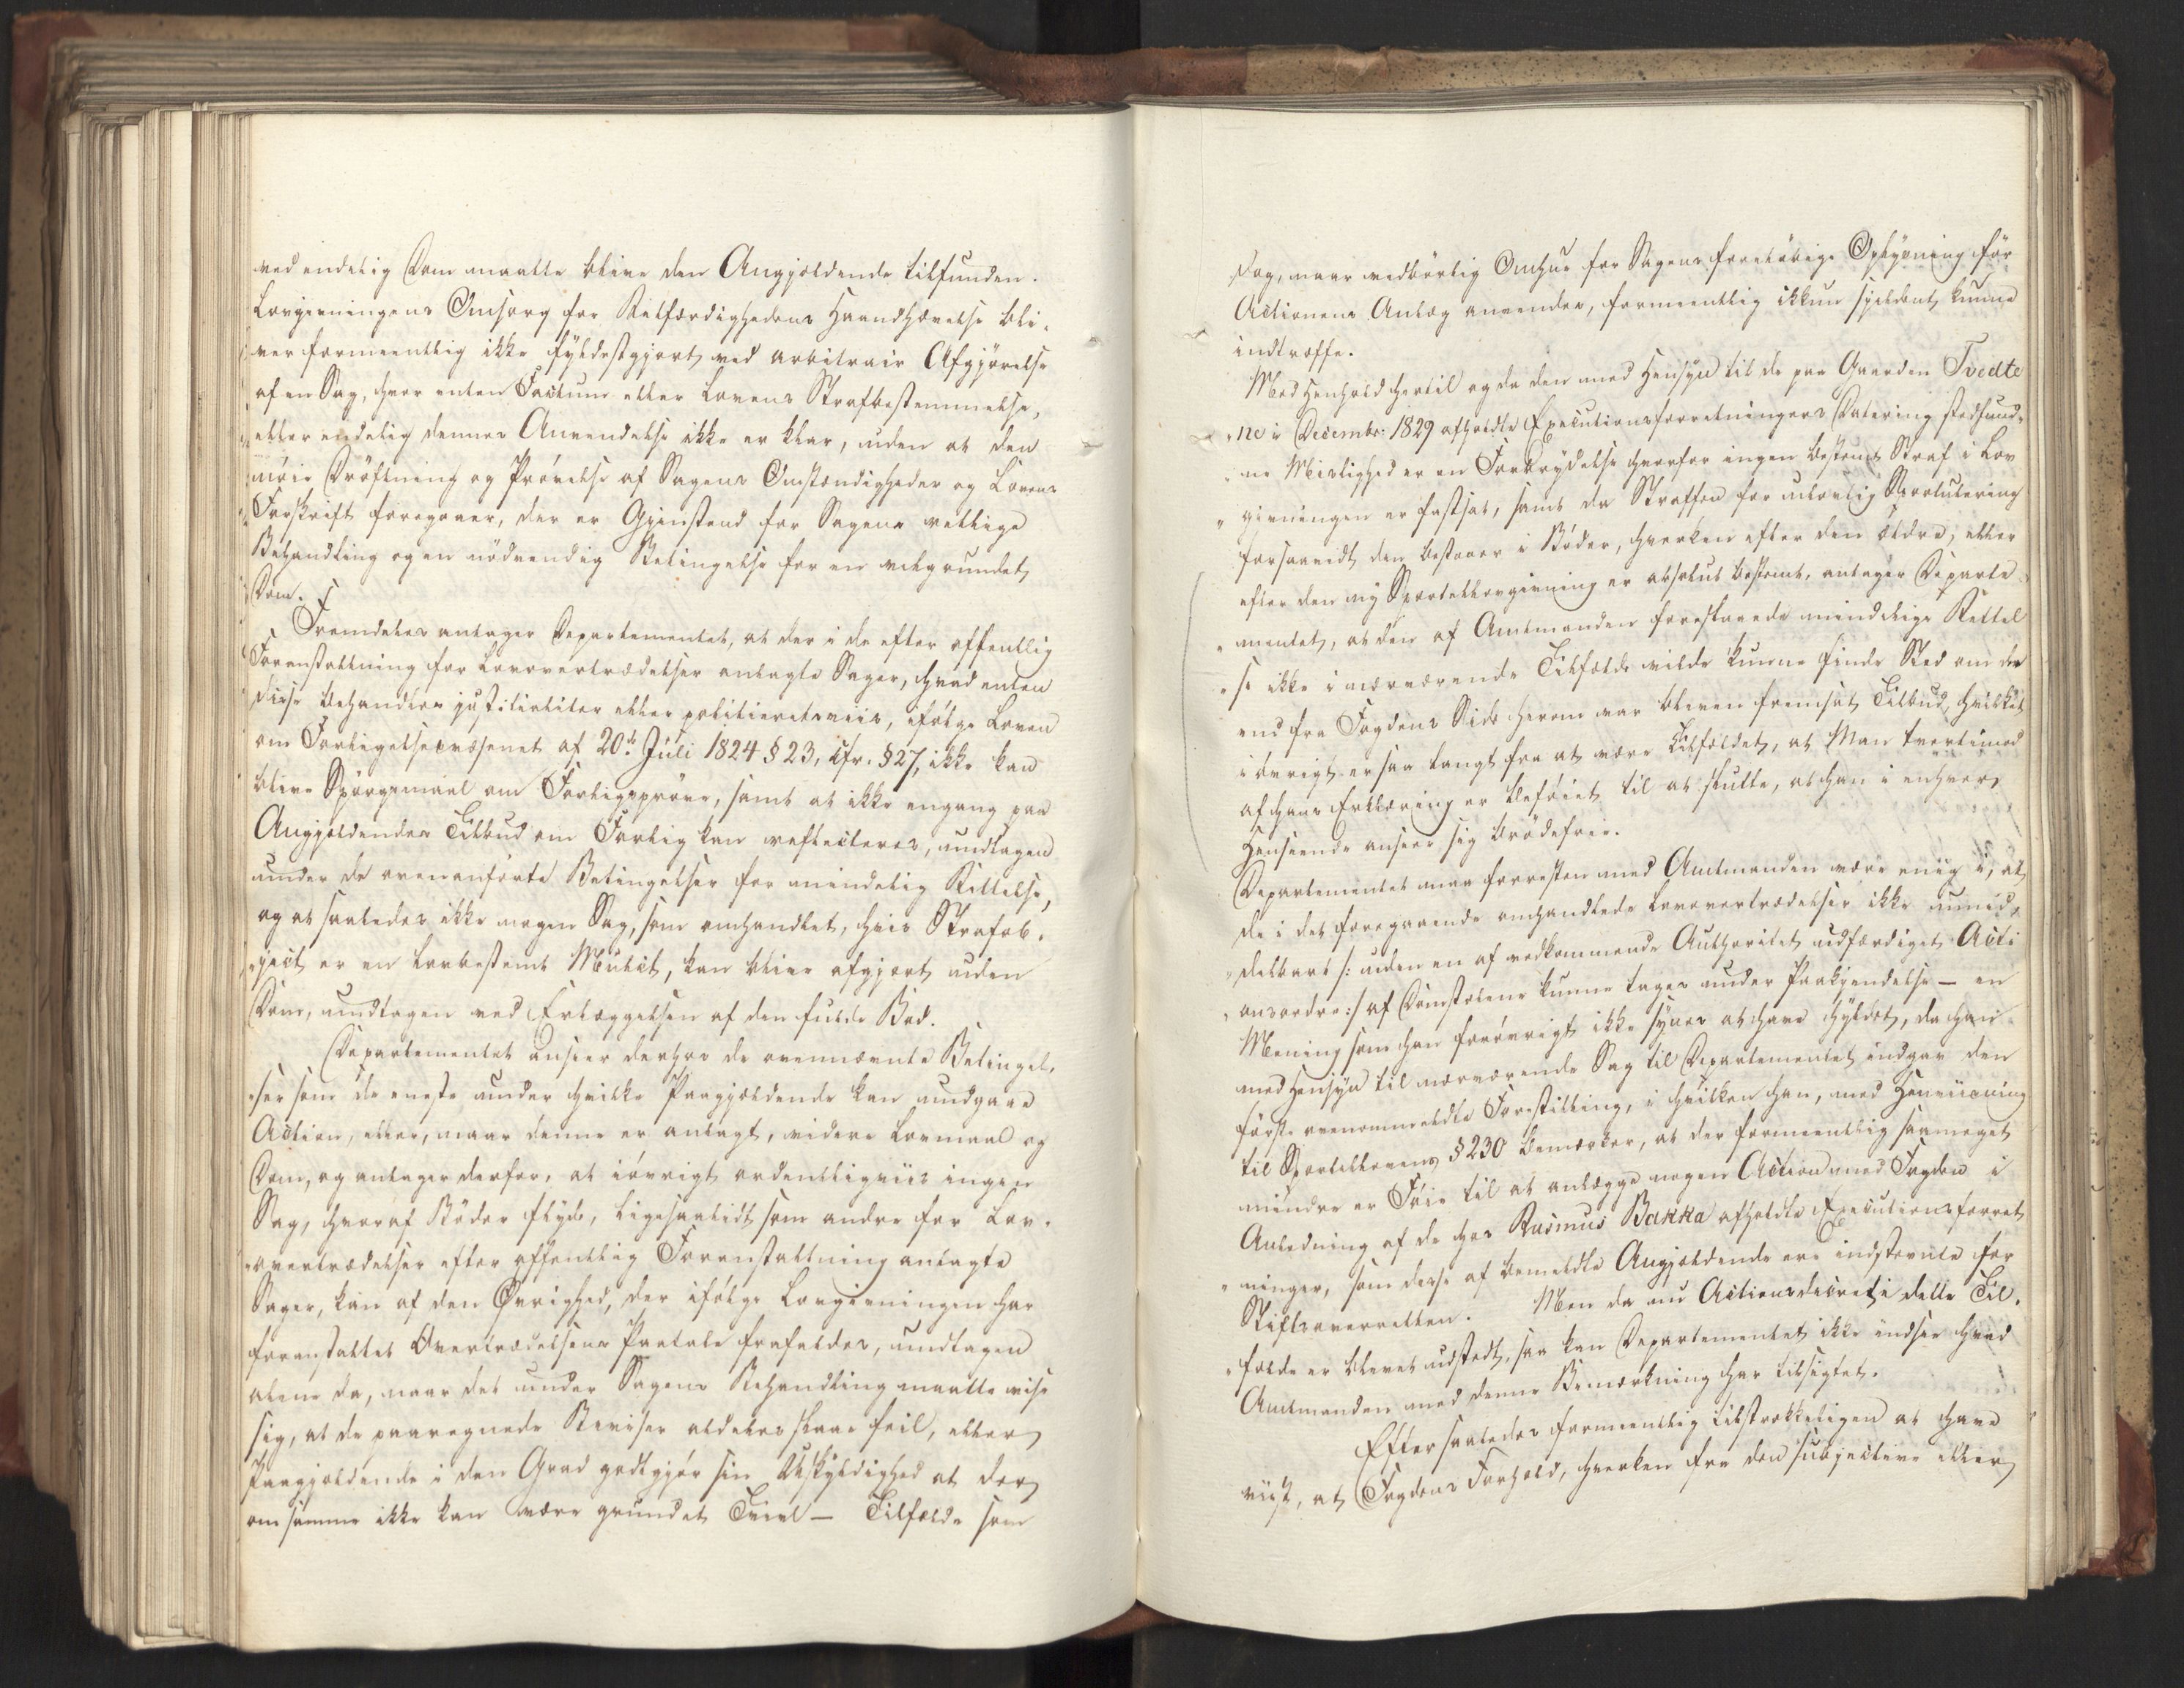 ved endelig Dom maatte blive den Angjældende tilfunden.
Lovgivningens Omsorg for Retfærdighedens Haandhævelse bli-
ver formeentlig ikke fyldestgjort ved arbitrair Afgjörelse
af en Sag, hvor enten Factum eller Lovens Strafbestemmelse,
eller endelig dennes Anvendelse ikke er klar, uden at den
nöie Dröftning og Prövelse af Sagens Omstændigheder og Lovens
Forskrift foregaaer, der er Gjenstand for Sagens retlige
Behandling og en nödvendig Betingelse for en velgrundet
Dom.
Fremdeles antager Departementet, at der i de efter offentlig
Foranstaltning for Lovovertrædelser anlagte Sager, hvad enten
disse behandles justitialiter eller politieretsviis, ifölge Loven
om Forligelsesvæsenet af 20de Juli 1824 § 23, cfr. § 27, ikke kan
blive Spörgsmaal om Forligspröve, samt at ikke engang paa
Angjældendes Tilbud om Forlig kan reflecteres, undtagen
under de ovenanförte Betingelser for mindelig Rettelse,
og at saaledes ikke nogen Sag, som omhandlet, hvis Strafob-
ject er en lovbestemt Mulct, kan blive afgjort uden
Dom, undtagen ved Erlæggelsen af den fulde Bod.
Departementet anseer derhos de ovennævnte Betingel-
ser som de eneste under hvilke Paagjældende kan undgaae
Action, eller, naar denne er anlagt, videre Lovmaal og
Dom, og antager derfor, at iövrigt ordentligviis ingen
Sag, hvoraf Böder flyde, ligesaalidt som andre for Lov-
overtrædelser efter offentlig Foranstaltning anlagte
Sager, kan af den Övrighed, der ifölge Lovgivningen har
foranstaltet Overtrædelsens Paatale frafaldes, undtagen
alene da, naar det under Sagens Behandling maatte vise
sig, at de paaregnede Beviser aldeles slaae feil, eller
Paagjældende i den Grad godtgjör sin Uskyldighed at der
om samme ikke kan være grundet Tvivl — Tilfælde som
dog, naar vedbörlig Omhue for Sagens forelöbige Oplysning för
Actionens Anlæg anvendes, formeentlig ikkun sjeldent kunne
indtræffe.
Med Henhold hertil og da den med Hensyn til de paa Gaarden Tvedte-
ne i Decembr. 1829 afholdte Executionsforretningers Datering stedfund-
ne Mislighed er en Forbrydelse hvorfor ingen bestemt Straf i Lov
givningen er fastsat, samt da Straffen for ulovlig Sportulering
forsaavidt den bestaaer i Böder, hverken efter den ældre, eller
efter den ny Sportellovgivning er absolut bestemt, antager Departe-
mentet, at den af Amtmanden foreslaaede mindelige Rettel
se ikke i nærværende Tilfælde vilde kunne finde Sted om der
end fra Fogdens Side herom var bleven fremsat Tilbud, hvilket
iövrigt er saa langt fra at være Tilfældet, at Man tvertimod
af hans Erklæring er beföiet til at slutte, at han i enhver
Henseende anseer sig brödefrie.
Departementet maa forresten med Amtmanden være eniig i, at
de i det foregaaende omhandlede Lovovertrædelser ikke umid-
delbart /: uden en af vedkommende Authoritet udfærdiget Acti
onsordre :/ af Domstolene kunne tages under Paakjendelse — en
Mening som han foröevrigt ikke synes at have hyldet, da han
med Hensyn til nærværende Sag til Departementet indgav den
förste ovenommeldte Forestilling, i hvilken han, med Henviisning
til Sportellovens § 230 bemærker, at der formeentlig saameget
mindre er Föie til at anlægge nogen Action mod Fogden i
Anledning af de hos Rasmus Bakka afholdte Executionsforret
ninger, som disse af bemeldte Angjældende ere indstevnte for
Stiftsoverretten. Men da nu Actionsdecret i dette Til-
fælde er blevet udstedt, saa kan Departementet ikke indsee hvad
Amtmanden med denne Bemærkning har tilsigtet.
Efter saaledes formeentlig tilstrækkeligen at have
viist, at Fogdens Forhold, hverken fra den subjective eller